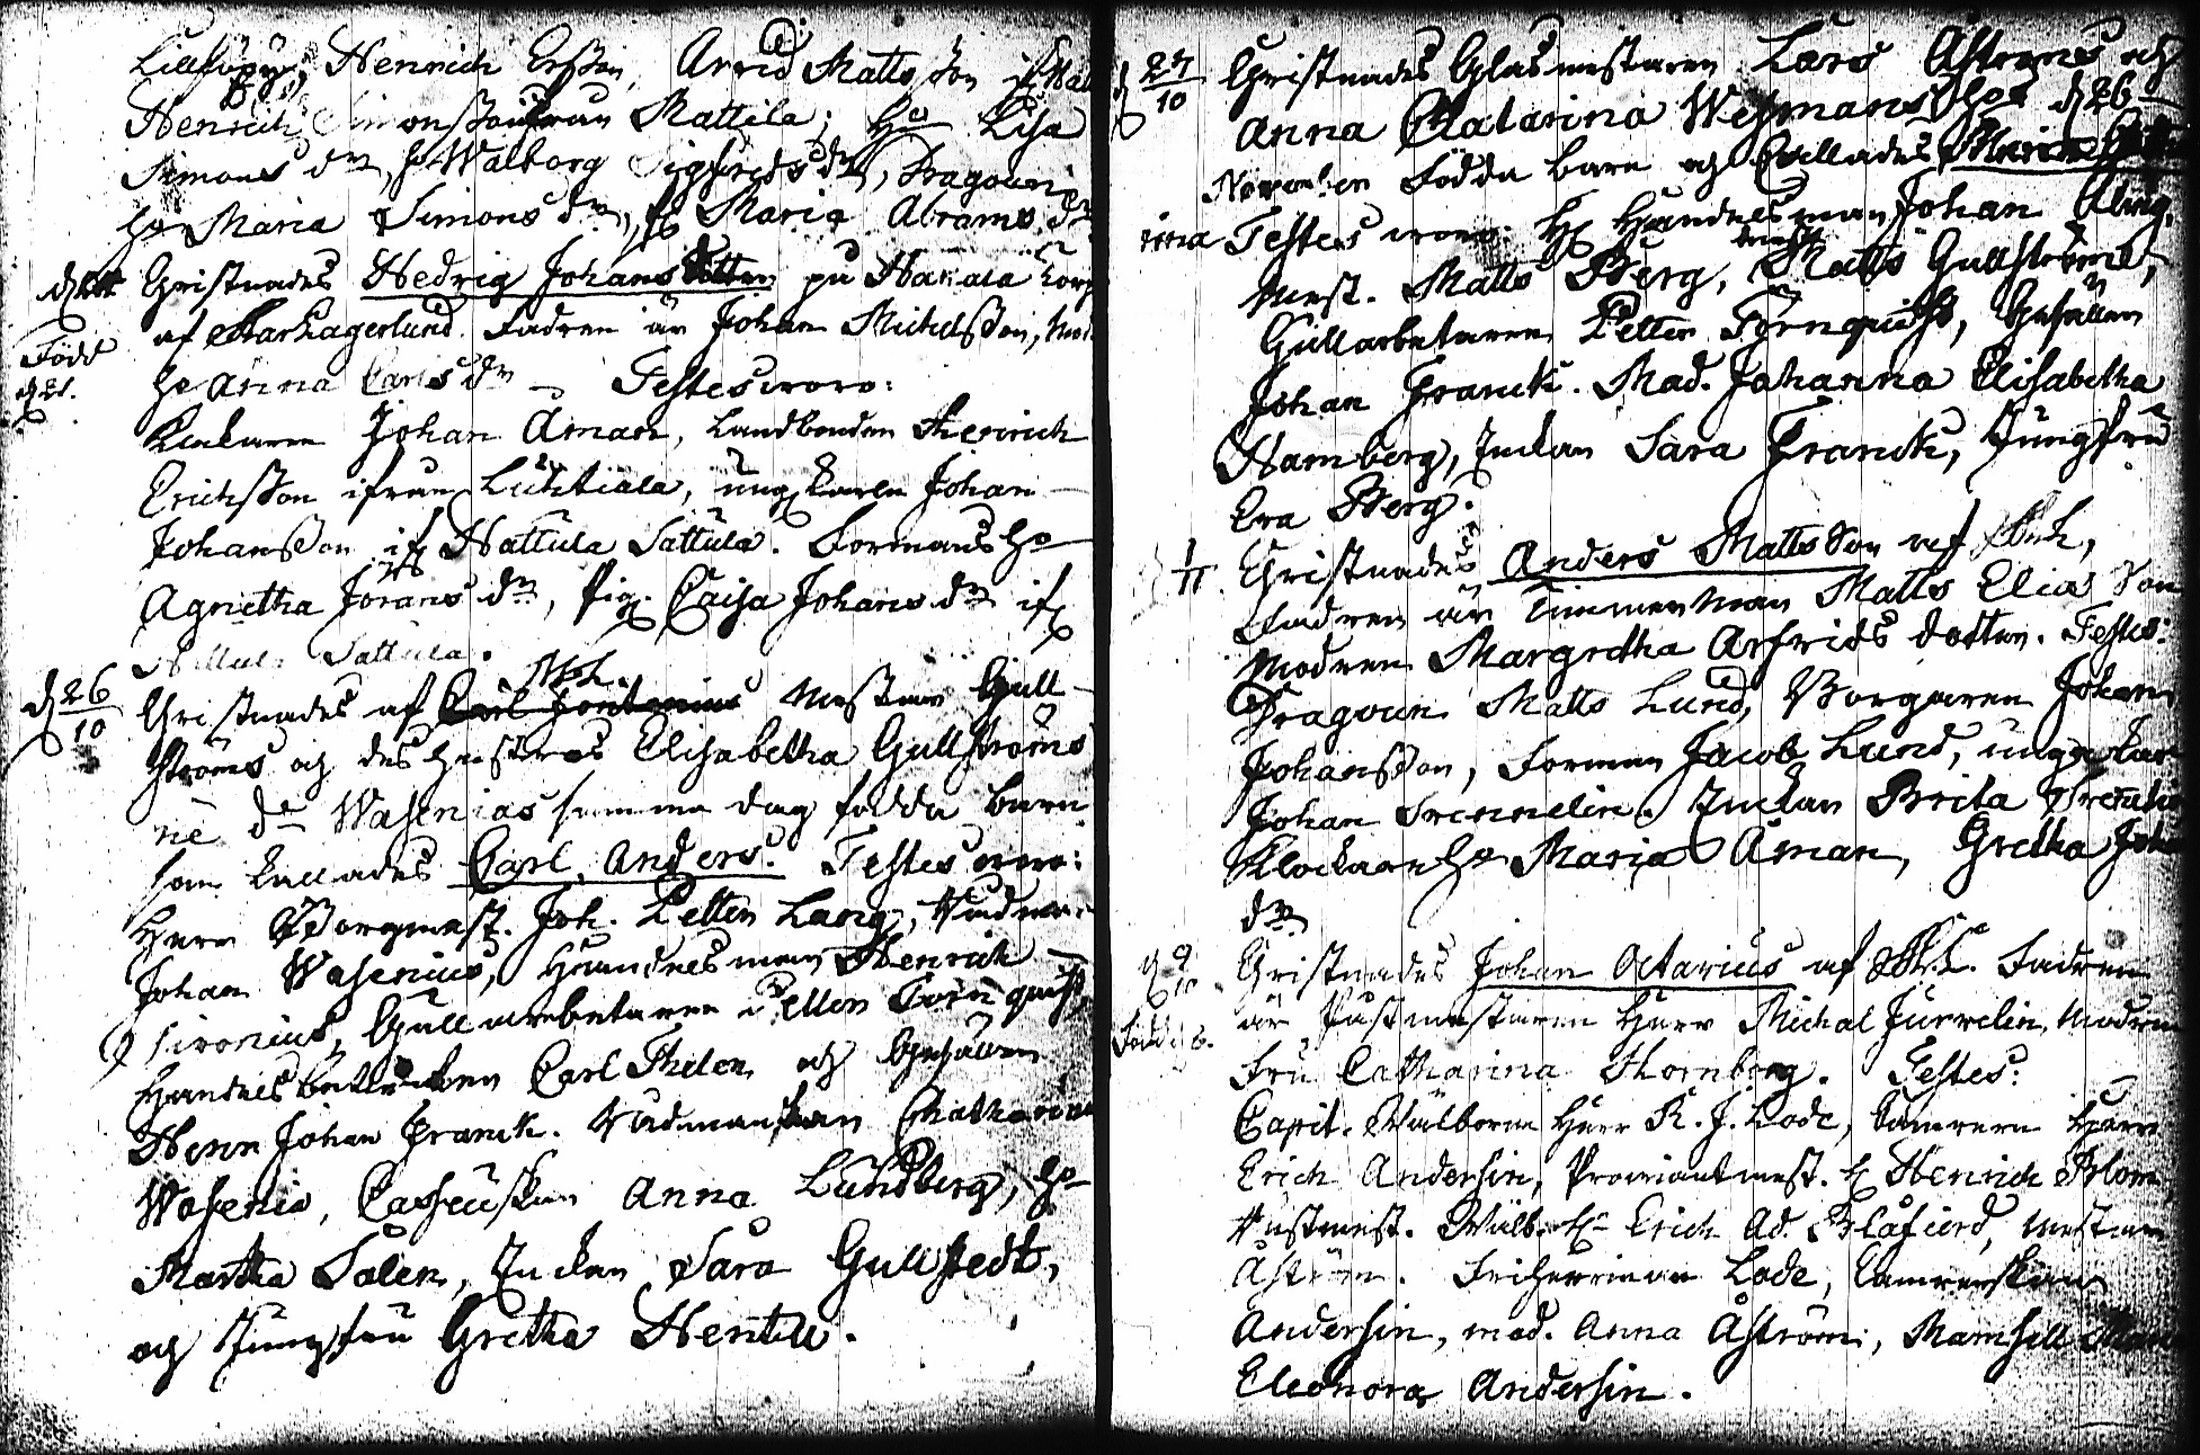 Henrich Ersson, Arvid Matts son
Henrich Simonsson från Mattila; Ho Lisa
Simons dr, ho Walborg Sigfrids dr, Dragoun
ho Maria Simons dr, Maria Abrams dr
Christnades Hedvig Johans dotter på Hakala torp
Född d 21.
af Harhagerlund. Fadren är Johan Michelsson, Mod
ho Anna Carls dr Testes woro:
Klockaren Johan Aman, Landbonden Henrich
Erichsson ifrån Luhtiala, ungkarlen Johan
Johansson if Nattula Sattula. Formans ho
Agnetha Jörans dr, Pig. Caisa Johans dr if
Sattula.
d 26/10 Christnades af Mest:ar Gull-
ströms och des hustrus Elisabetha Gullströms
né d Wasenias samma dag födda barn
som kallades Carl Anders. Testes woro:
Herr Borgmest. Joh. Petter Lang, Rådman
Johan Wasenius, Handelsman Henrich
Sironius, Gullarbetaren Petter Törnquist,
Handelsbetienten Carl Thelen och Gesällen
Herr Johan Franck. Rådmanskan Chatharina
Wasenia, Casseuskan Anna Lundberg, ho
Martha Salen, Enckan Sara Gullstedt,
och Jungfru Gretha Hentu.
d 27/10 Christnades Glasmestaren Lars Åströms och
Anna Catarina Wesmans hos d 26
November Födda barn och Kallades Maria
Testes woro: H Handelsman Johan Kling,
Mest. Matts Berg, Mest Matts Gullström,
Gullarbetaren Petter Törnquist, Gesällen
Johan Franck. Mad. Johanna Elisabetha
Hamberg, Enckan Sara Franck, Jungfru
Eva Berg.
1/11 Christnades Anders Matts Son af
Fadren är Timmerman Matts Elias Son
Modren Margretha Arfvids dotter. Testes:
Dragoun Matts Lund, Borgaren Johan
Johansson, Forman Jacob Lund, ungkar
Johan Svennelin. Enckan Brita
Klockare ho Maria Aman, Gretha Joha
dr
Christnades Johan Octavius af Fadren
är Postmestaren Herr Michal Jurvelin, Modren
Fru Catharina Thornberg. Testes:
Capit. Wälborne Herr R. J. Lode, Camrern Herr
Erich Andersin, Proviantmest. H Henrich Blom,
Rustmest. Wälb. Hr Erich Ad. Blåfierd, Mestare
Åström. Friherrinnan Lode, Camrerskan
Andersin, mad. Anna Åström, Mamsell
Eleonora Andersin.